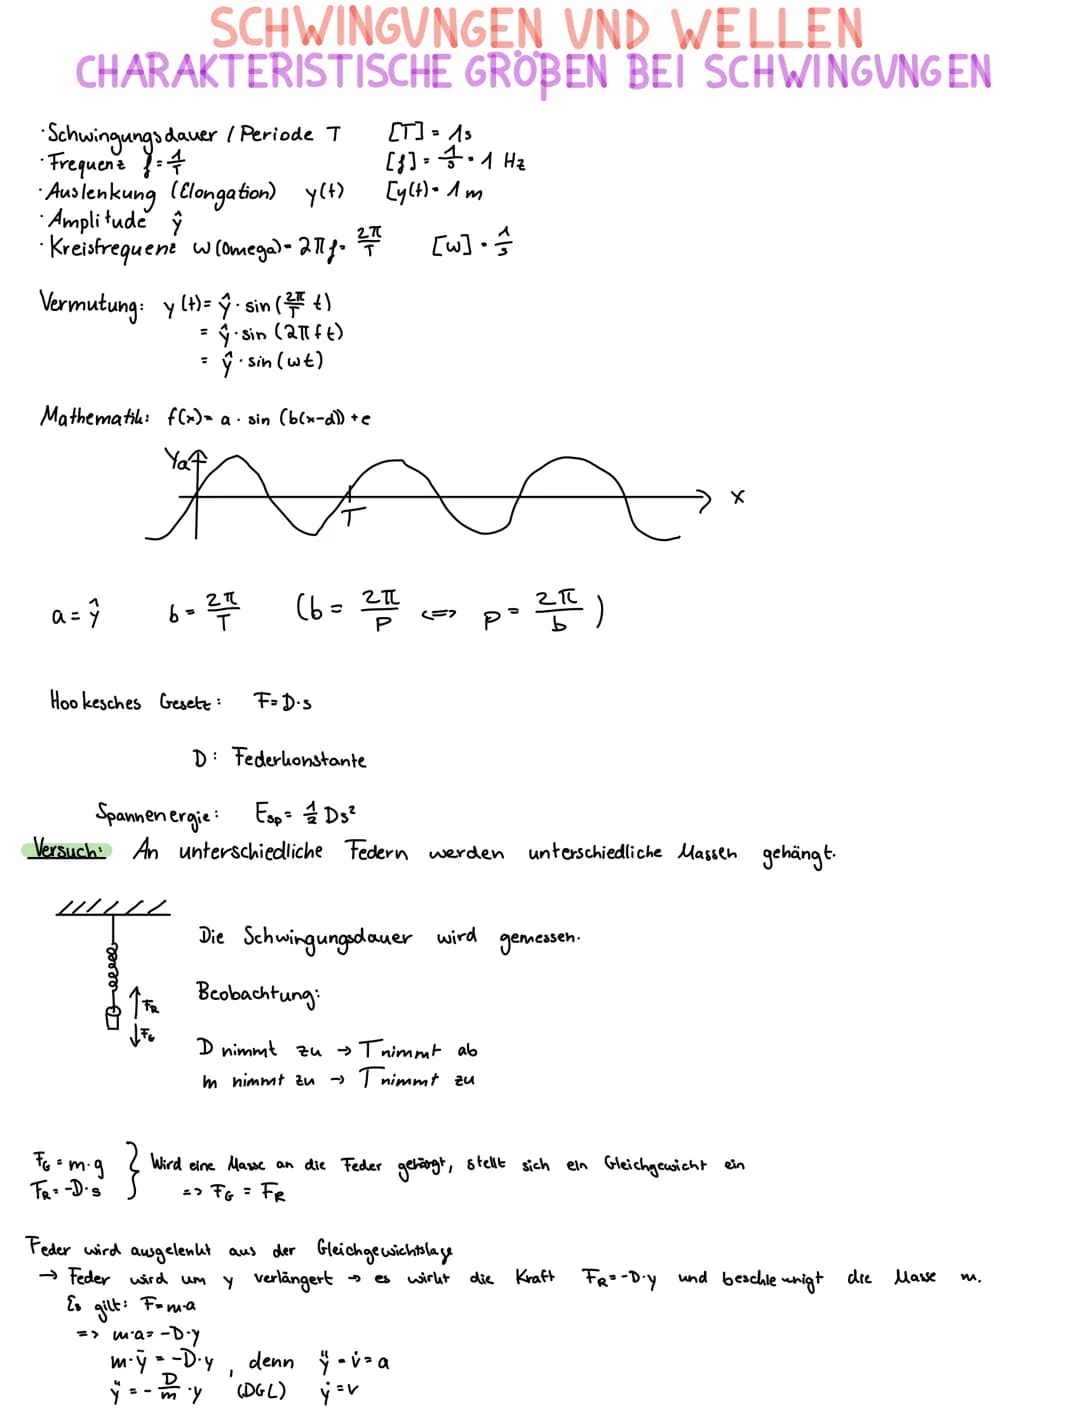 SCHWINGUNGEN UND WELLEN
CHARAKTERISTISCHE GRÖßEN BEI SCHWINGUNGEN
·Schwingungsdauer / Periode T [T] = 1s
·Frequenz f = 1/T [f] = 1/s = 1 Hz
·Auslenkung (Elongation) y(t) [y(t) = 1 m
·Amplitude ŷ
·Kreisfrequenz w (Omega) = 2π f = 2π/T [w] = 1/s
Vermutung: y (t) = ŷ · sin (2π/T t)
= ŷ · sin (2π f t)
= ŷ · sin (wt)
Mathematik: f(x) = a · sin (b(x-d)) + e
Ya
x
T
a = ŷ b = 2π/T (b = 2π/P <=> p = 2π/b )
Hookesches Gesetz: F = D·s
D: Federkonstante
Spannenergie: Esp = 1/2 Ds²
Versuch: An unterschiedliche Federn werden unterschiedliche Massen gehängt.
Die Schwingungsdauer wird gemessen.
Beobachtung:
FR
FG
D nimmt zu → T nimmt ab
m nimmt zu → T nimmt zu
FG = m·g } Wird eine Masse an die Feder gehängt, stellt sich ein Gleichgewicht ein
FR = -D·s => FG = FR
Feder wird ausgelenkt aus der Gleichgewichtslage
→ Feder wird um y verlängert → es wirkt die Kraft FR = -D·y und beschleunigt die Masse m.
Es gilt: F = m·a
=> m·a = -D·y
m·ÿ = -D·y , denn ÿ = v̇ = a
ÿ = - D/m · y (DGL) ẏ = v